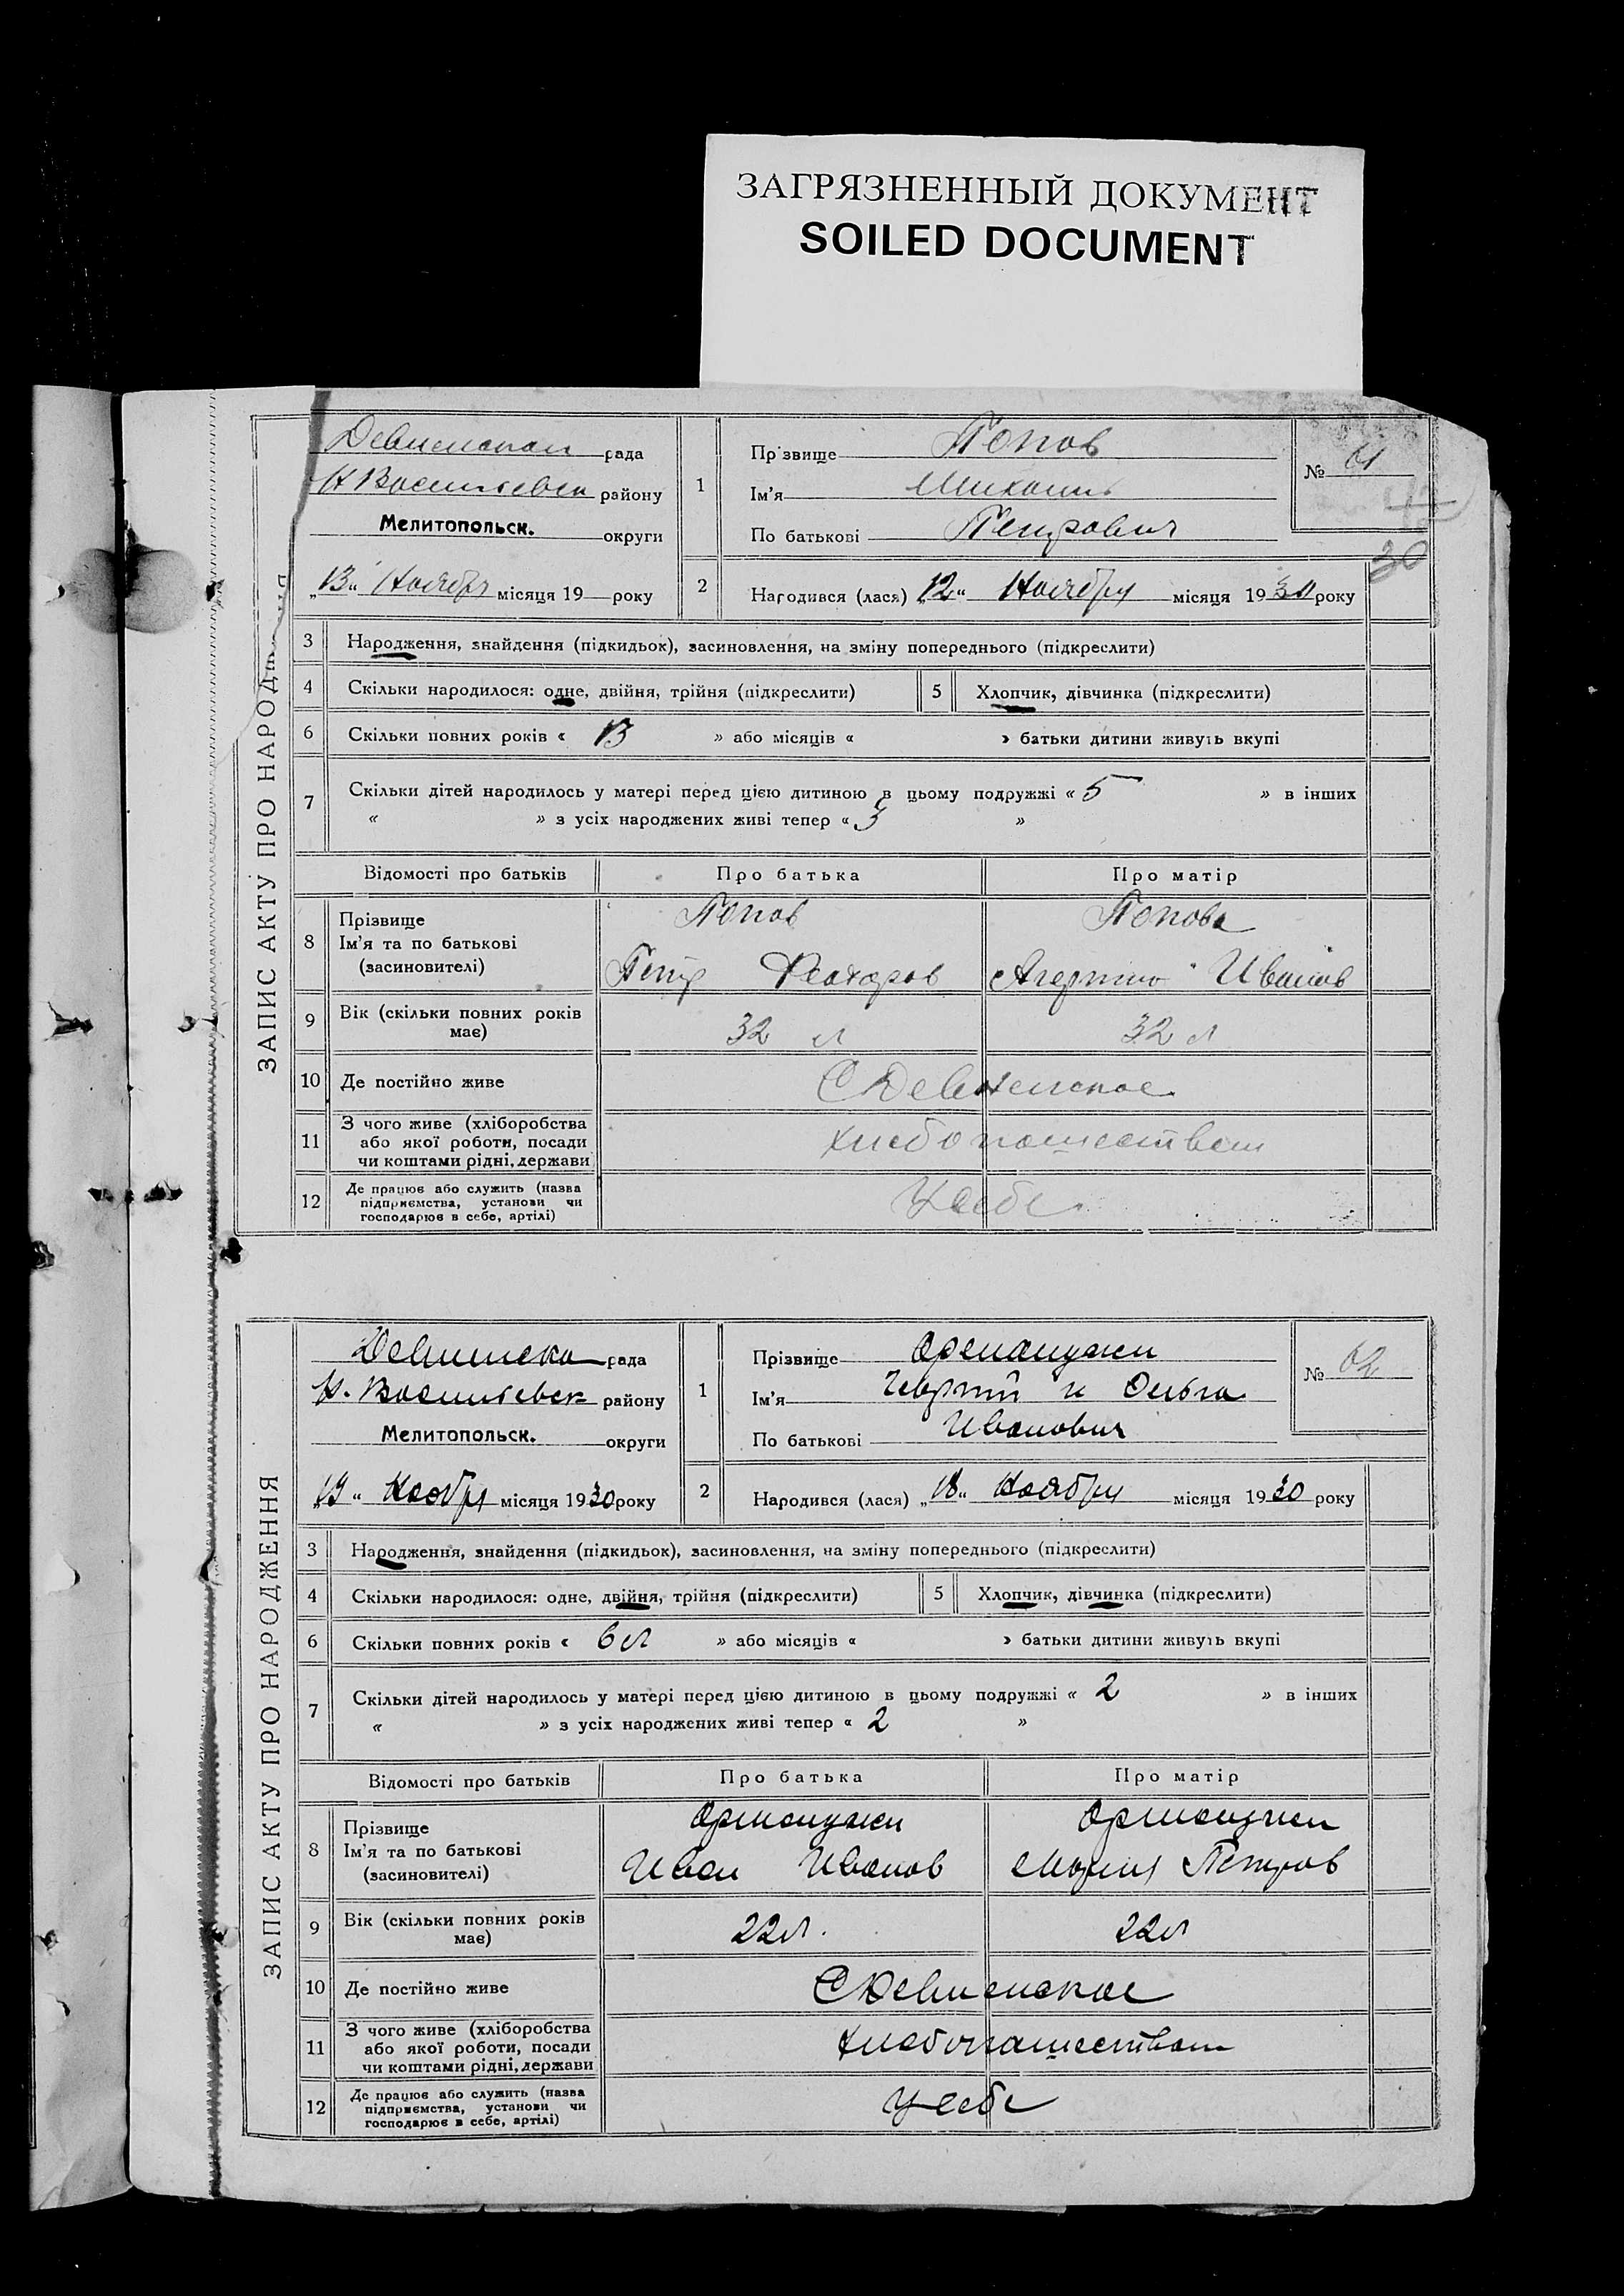 ЗАГРЯЗНЕННЫЙ ДОКУМЕНТ
SOILED DOCUMENT
ЗАПИС АКТУ ПРО НАРОДЖ
рада
Н Васильевск району
Мелитопольск. округи
„13“ Ноября місяця 19 року
1
Прізвище Попов
Ім'я Михаил
По батькові Петрович
№ 61
30
2
Народився (лася) „12“ Ноября місяця 1930 року
3 Народження, знайдення (підкидьок), засиновлення, на зміну попереднього (підкреслити)
4 Скільки народилося: одне, двійня, трійня (підкреслити) 5 Хлопчик, дівчинка (підкреслити)
6 Скільки повних років « 13 » або місяців « » батьки дитини живуть вкупі
7 Скільки дітей народилось у матері перед цією дитиною в цьому подружжі « 5 » в інших
« » з усіх народжених живі тепер « 3 »
Відомості про батьків Про батька Про матір
8 Прізвище
Ім'я та по батькові
(засиновителі)
Попов Попова
Петр Феодоров Иванов
9 Вік (скільки повних років
має)
32 л 32 л
10 Де постійно живе С Девненское
11 З чого живе (хліборобства
або якої роботи, посади
чи коштами рідні, держави
хлебопашеством
12 Де працює або служить (назва
підприємства, установи чи
господарює в себе, артілі)
У себе
ЗАПИС АКТУ ПРО НАРОДЖЕННЯ
Девненска рада
Н. Васильевск району
Мелитопольск. округи
„19“ Ноября місяця 1930 року
1
Прізвище Орманжи
Ім'я Георгий и Ольга
По батькові Иванович
№ 62
2
Народився (лася) „18“ Ноября місяця 1930 року
3 Народження, знайдення (підкидьок), засиновлення, на зміну попереднього (підкреслити)
4 Скільки народилося: одне, двійня, трійня (підкреслити) 5 Хлопчик, дівчинка (підкреслити)
6 Скільки повних років « 6 л » або місяців « » батьки дитини живуть вкупі
7 Скільки дітей народилось у матері перед цією дитиною в цьому подружжі « 2 » в інших
« » з усіх народжених живі тепер « 2 »
Відомості про батьків Про батька Про матір
8 Прізвище
Ім'я та по батькові
(засиновителі)
Орманжи Орманжи
Иван Иванов Мария Петров
9 Вік (скільки повних років
має)
22 л. 22 л
10 Де постійно живе С Девненское
11 З чого живе (хліборобства
або якої роботи, посади
чи коштами рідні, держави
хлебопашеством
12 Де працює або служить (назва
підприємства, установи чи
господарює в себе, артілі)
у себе